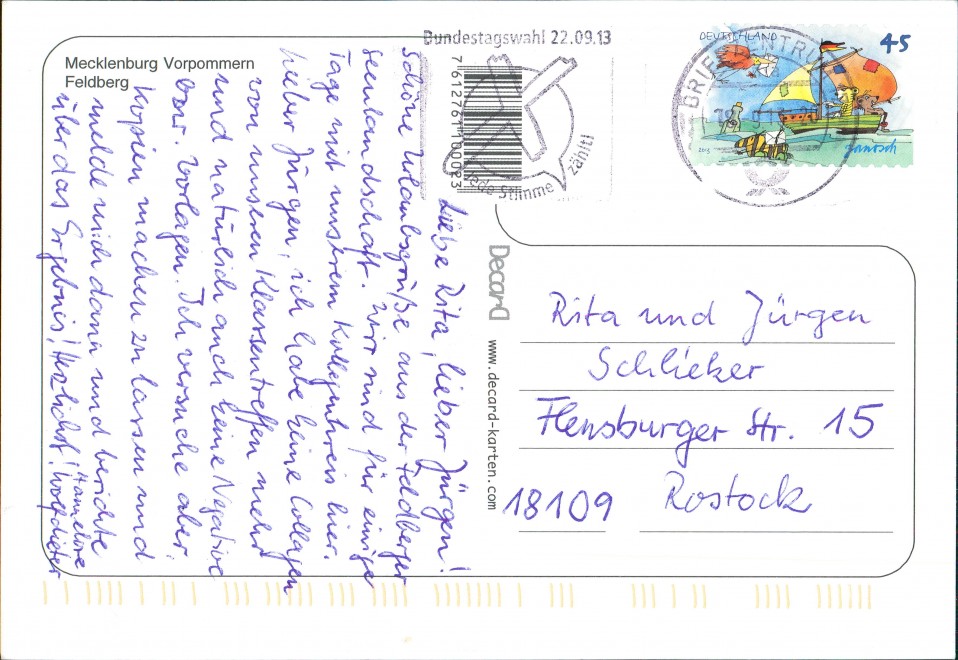 Mecklenburg Vorpommern
Feldberg
Bundestagswahl 22.09.13
Jede Stimme zählt!
7612761100093
DEUTSCHLAND
45
BRIEFZENTRUM
2013
janosch
Liebe Rita, lieber Jürgen!
Schöne Urlaubsgrüße aus der Feldberger
Seenlandschaft. Wir sind für einige
Tage mit unserem Kollegenkreis hier.
Lieber Jürgen, ich habe keine Collagen
von unseren Klassentreffen mehr
und natürlich auch keine Negative
bzw. Vorlagen. Ich versuche aber
Kopien machen zu lassen und
melde mich dann und berichte
über das Ergebnis! Herzlichst!
Hannelore
Wolfdieter
Decard
www.decard-karten.com
Rita und Jürgen
Schlieker
Flensburger Str. 15
18109 Rostock